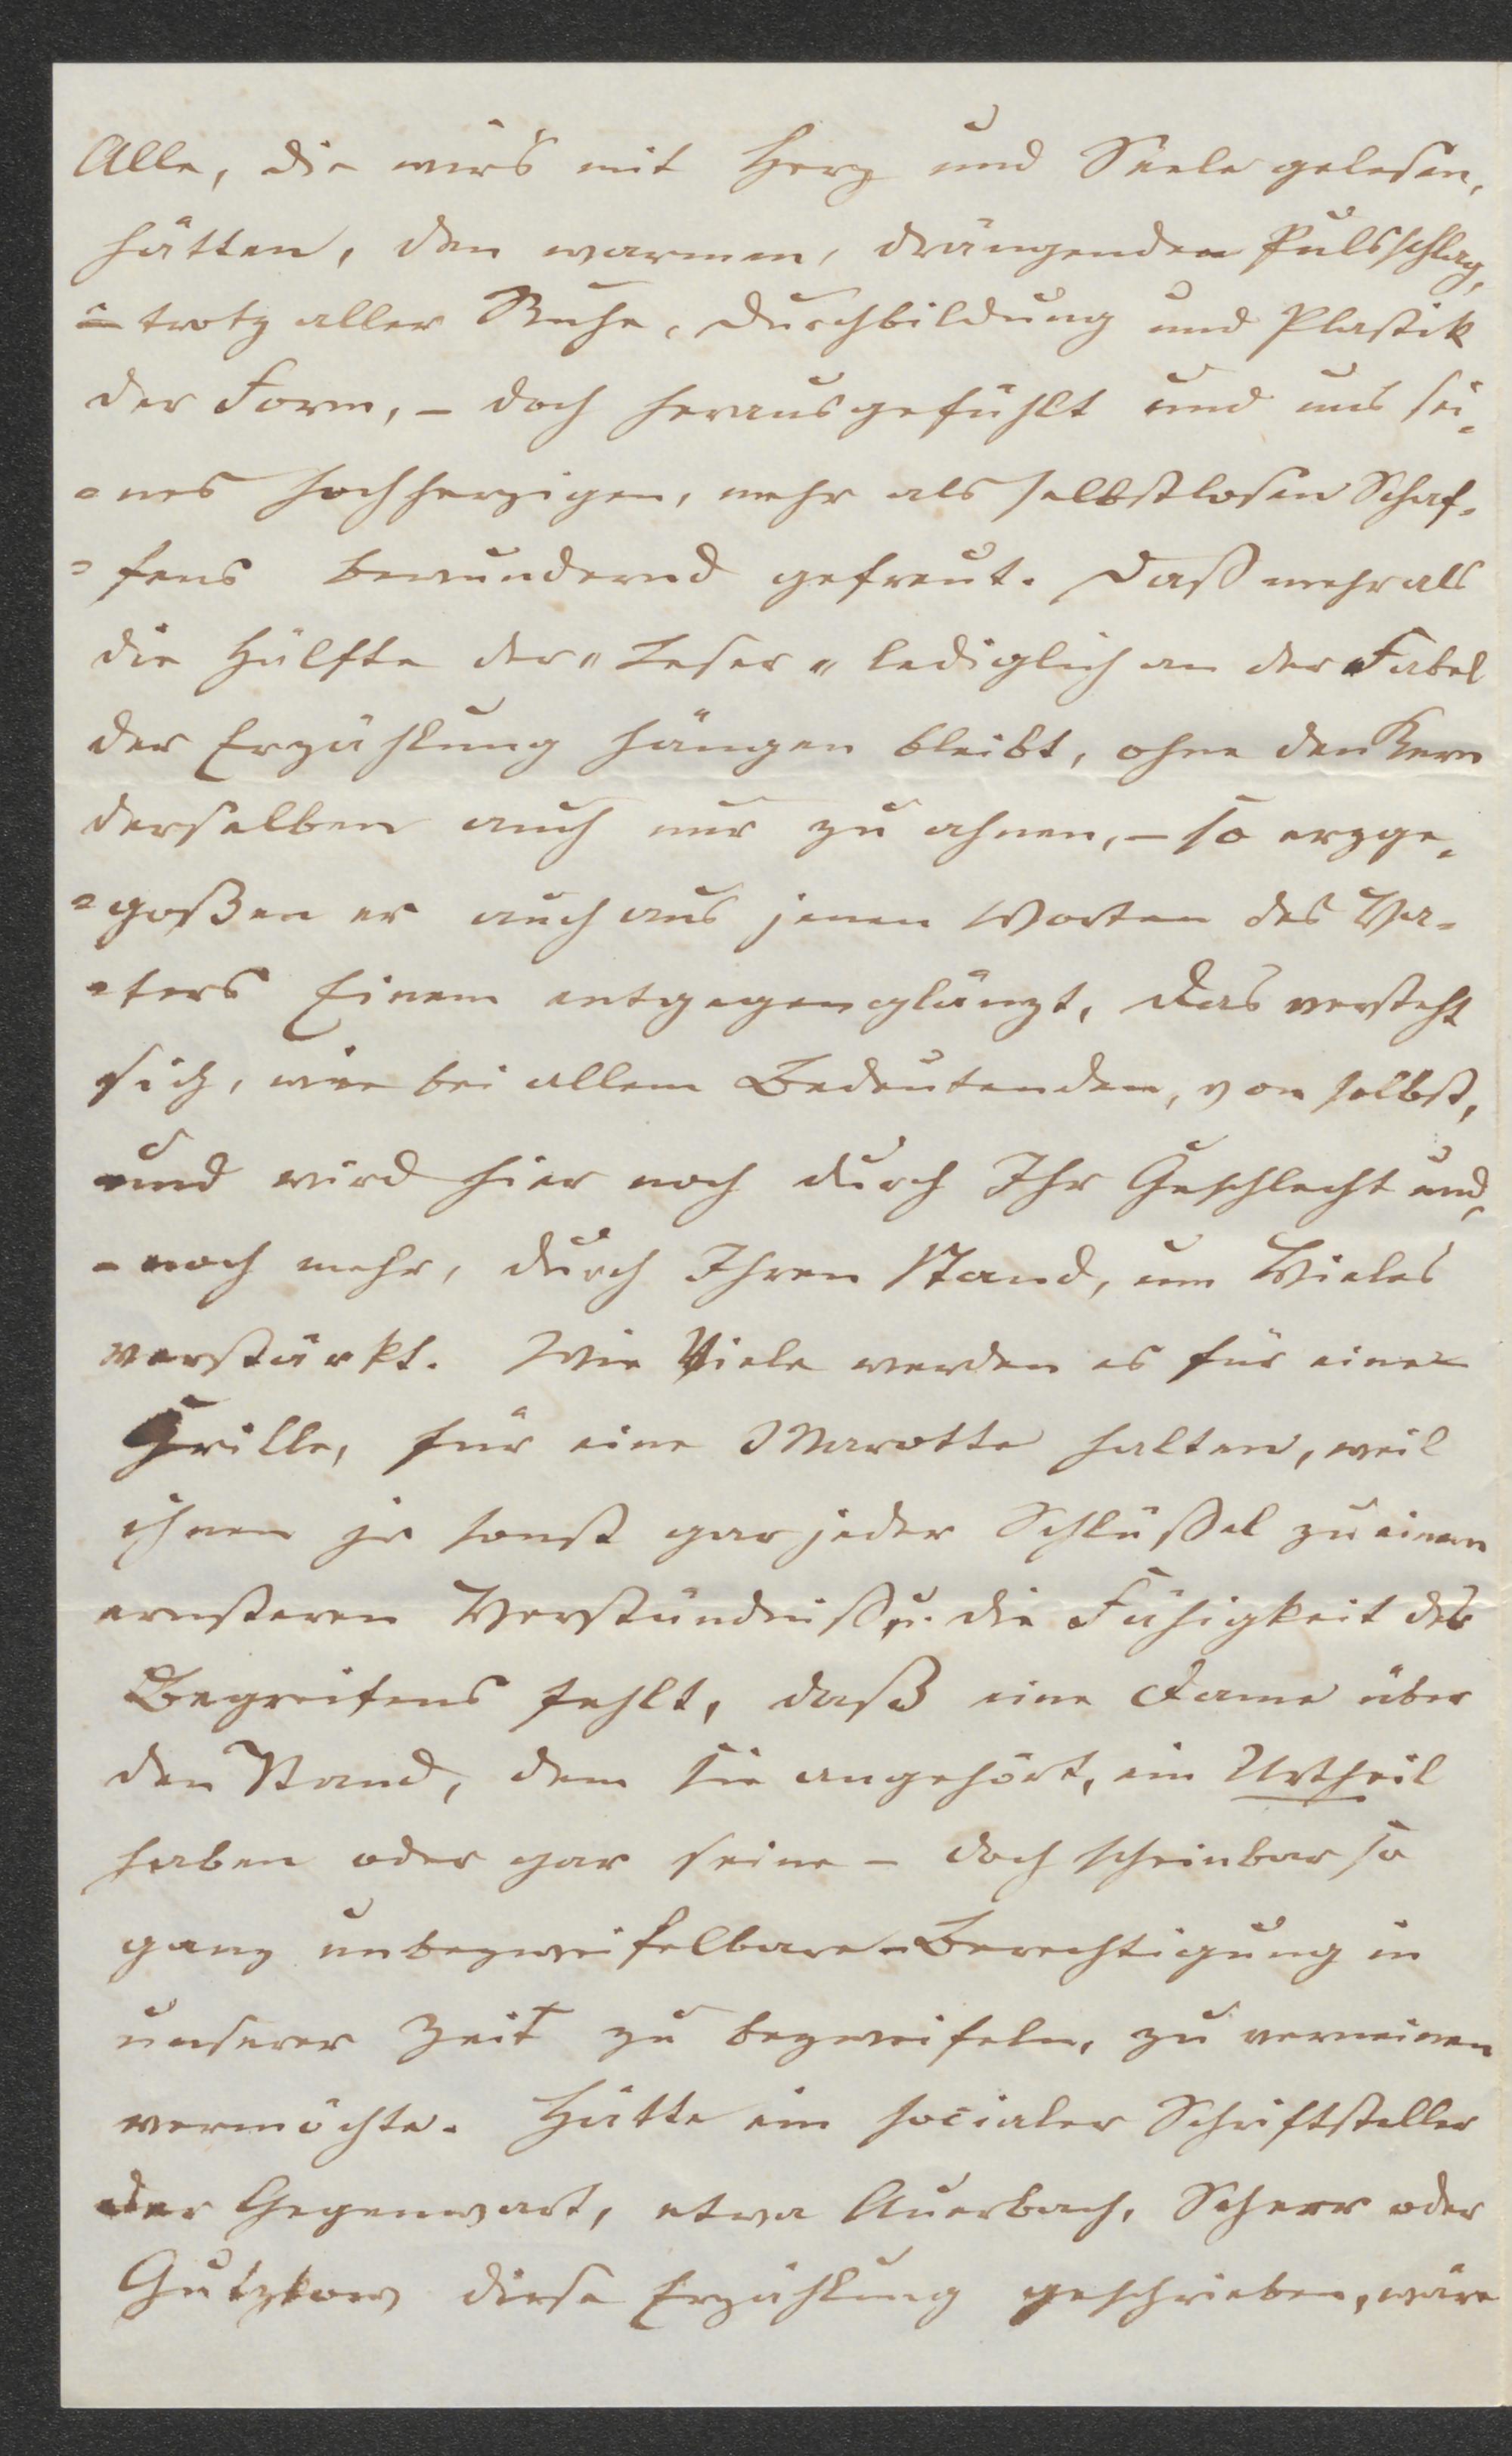 Alle, die wir's mit Herz und Seele gelesen,
hätten, den warmen, drängenden Pulsschlag,
– trotz aller Ruhe, Durchbildung und Plastik
der Form, – doch herausgefühlt und uns sei-
-nes hochherzigen, mehr als selbstlosen Schaf-
-fens bewundernd gefreut. Daß mehr als
die Hälfte der „Leser" lediglich an der Fabel
der Erzählung hängen bleibt, ohne den Kern
derselben auch nur zu ahnen, – so erzge-
-goßen er auch aus jenen Worten des Va-
-ters Einem entgegenglänzt, das versteht
sich, wie bei allem Bedeutenden, von selbst,
und wird hier noch durch Ihr Geschlecht und,
– noch mehr, durch Ihren Stand, um Vieles
verstärkt. Wie Viele werden es für eine
Grille, für eine Marotte halten, weil
ihnen ja sonst gar jeder Schlüßel zu einem
ernsteren Verständniß u. die Fähigkeit des
Begreifens fehlt, daß eine Dame über
den Stand, dem sie angehört, ein Urtheil
haben oder gar seine – doch scheinbar so
ganz unbezweifelbare – Berechtigung in
unserer Zeit zu bezweifeln, zu verneinen
vermöchte. Hätte ein socialer Schriftsteller
der Gegenwart, etwa Auerbach, Scherr oder
Gutzkow diese Erzählung geschrieben, wäre